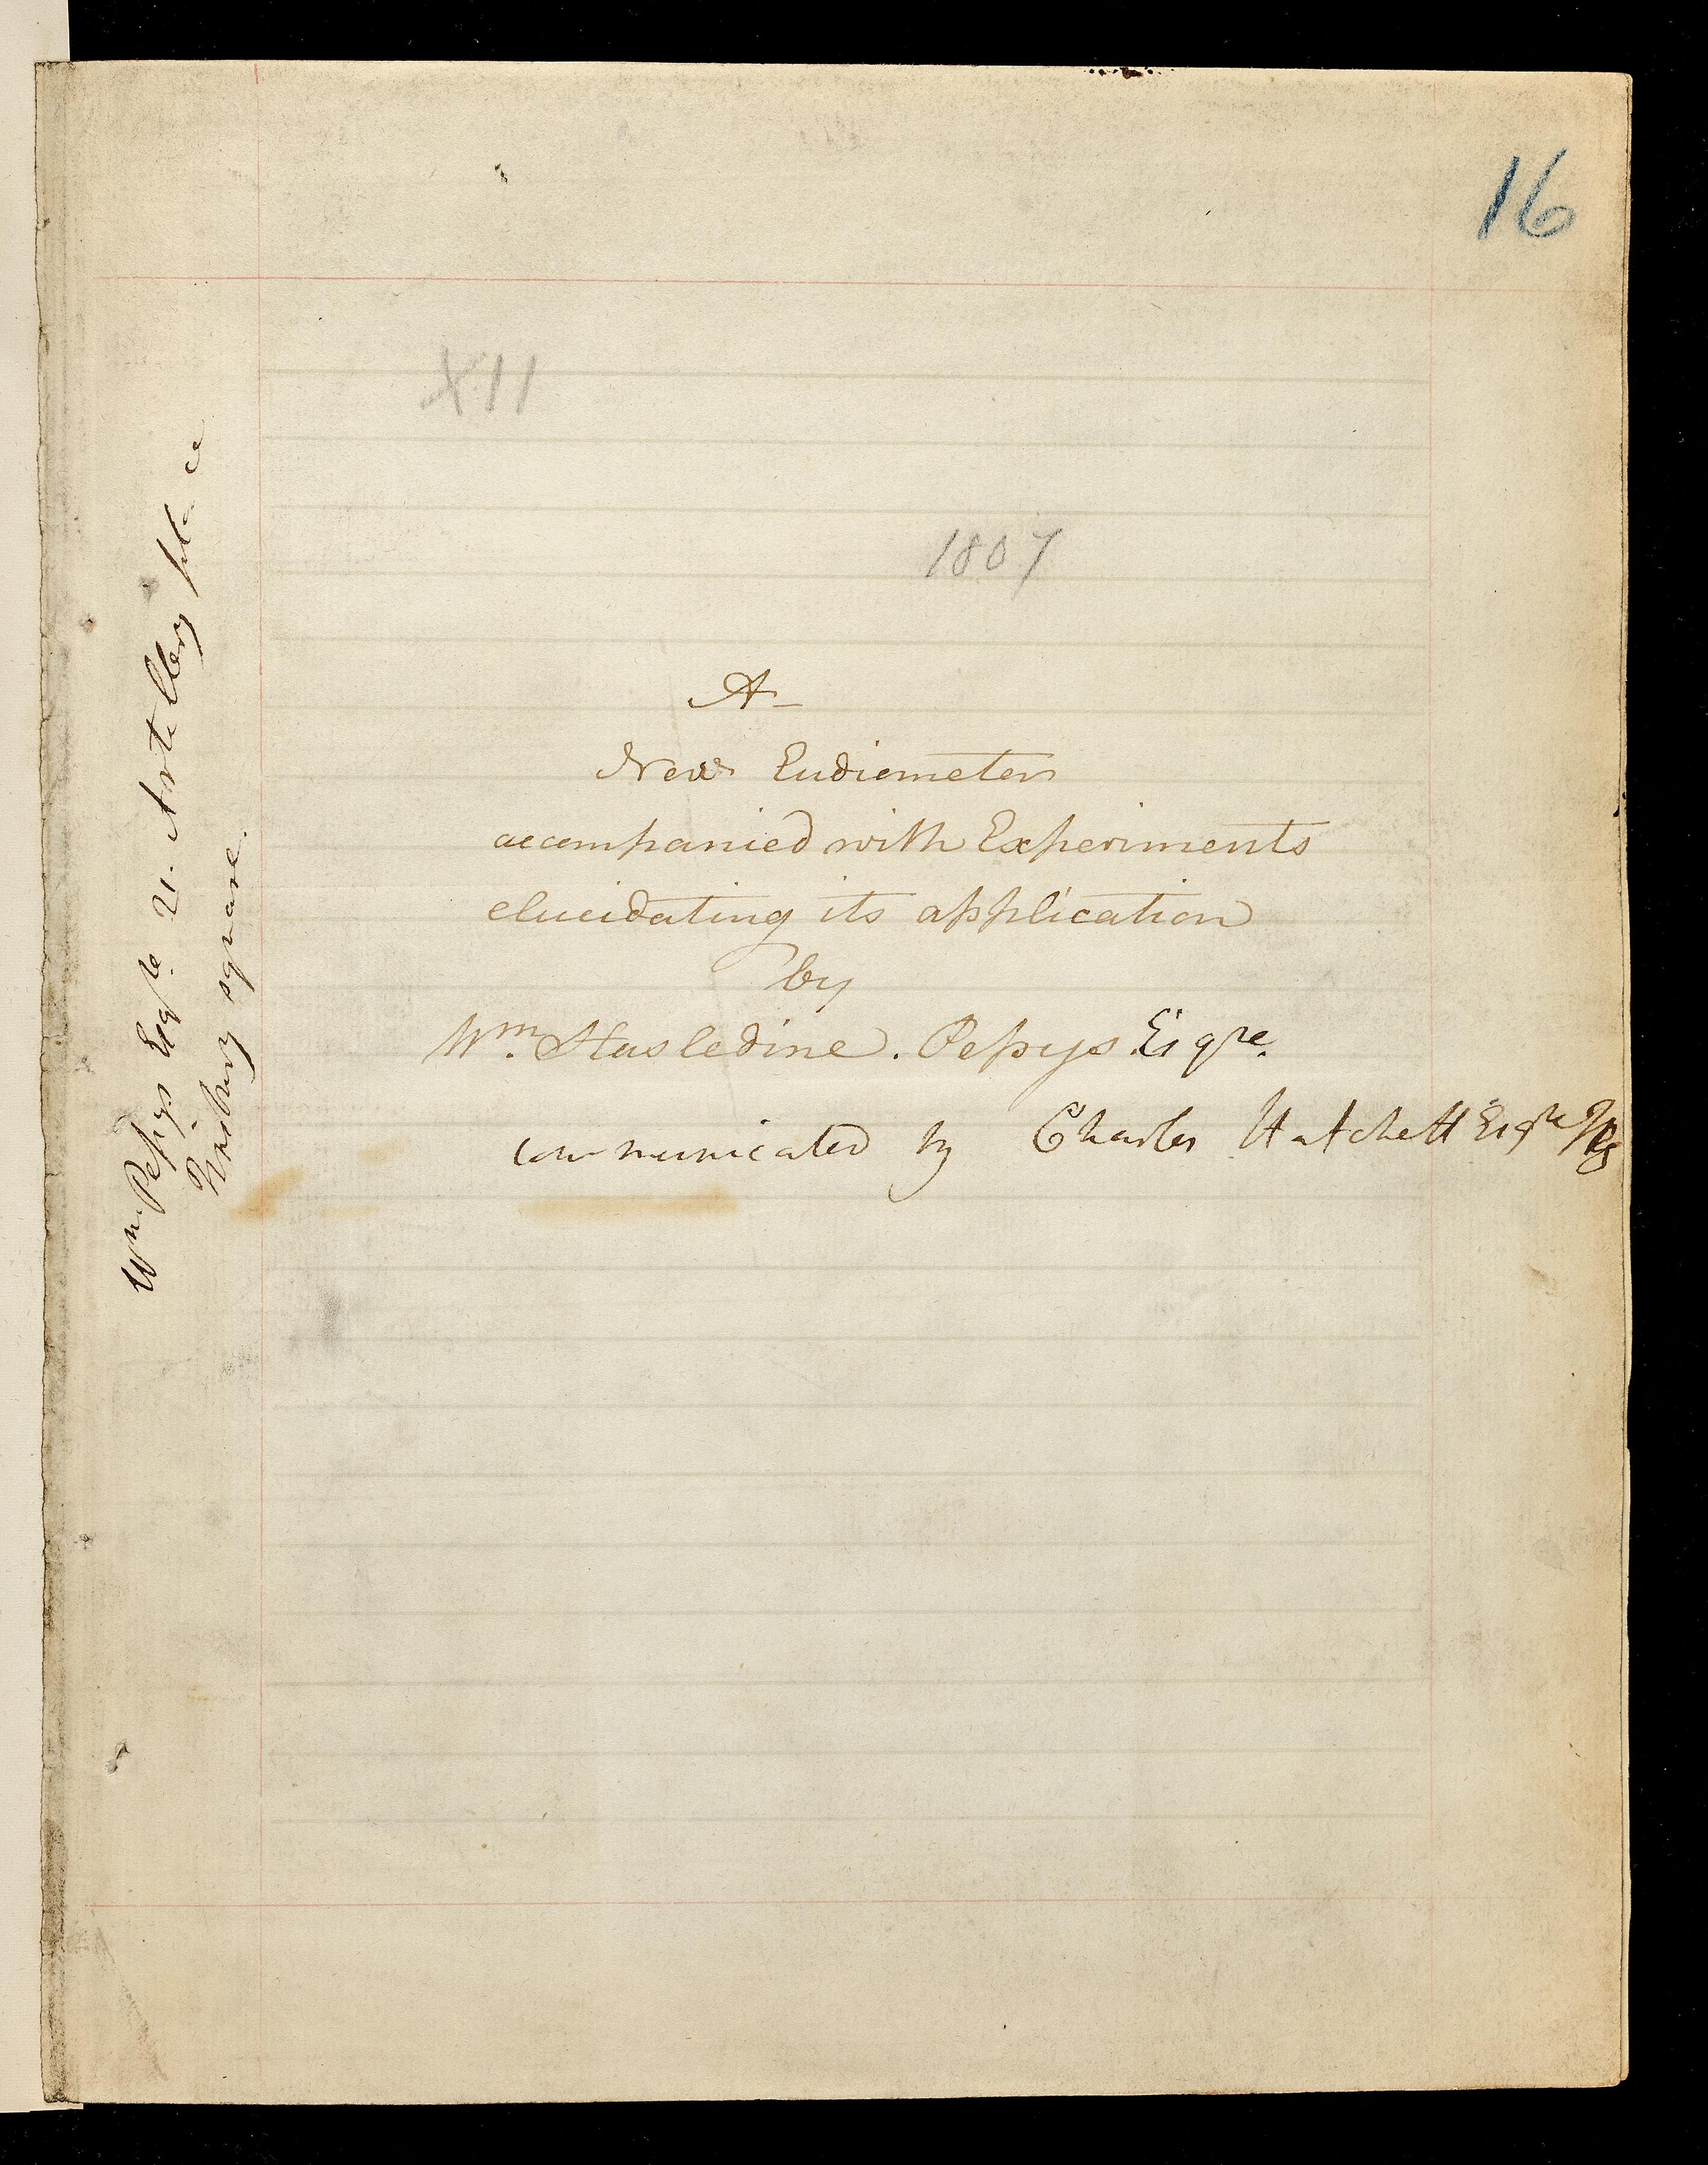 16
XII
1807
A
New Eudiometer
accompanied with Experiments
elucidating its application
by
Wm. Hasledine. Pepys. Esqre.
communicated by Charles Hatchett Esqre
Wm. Pepys Esqre. 21. Artillery place
square.